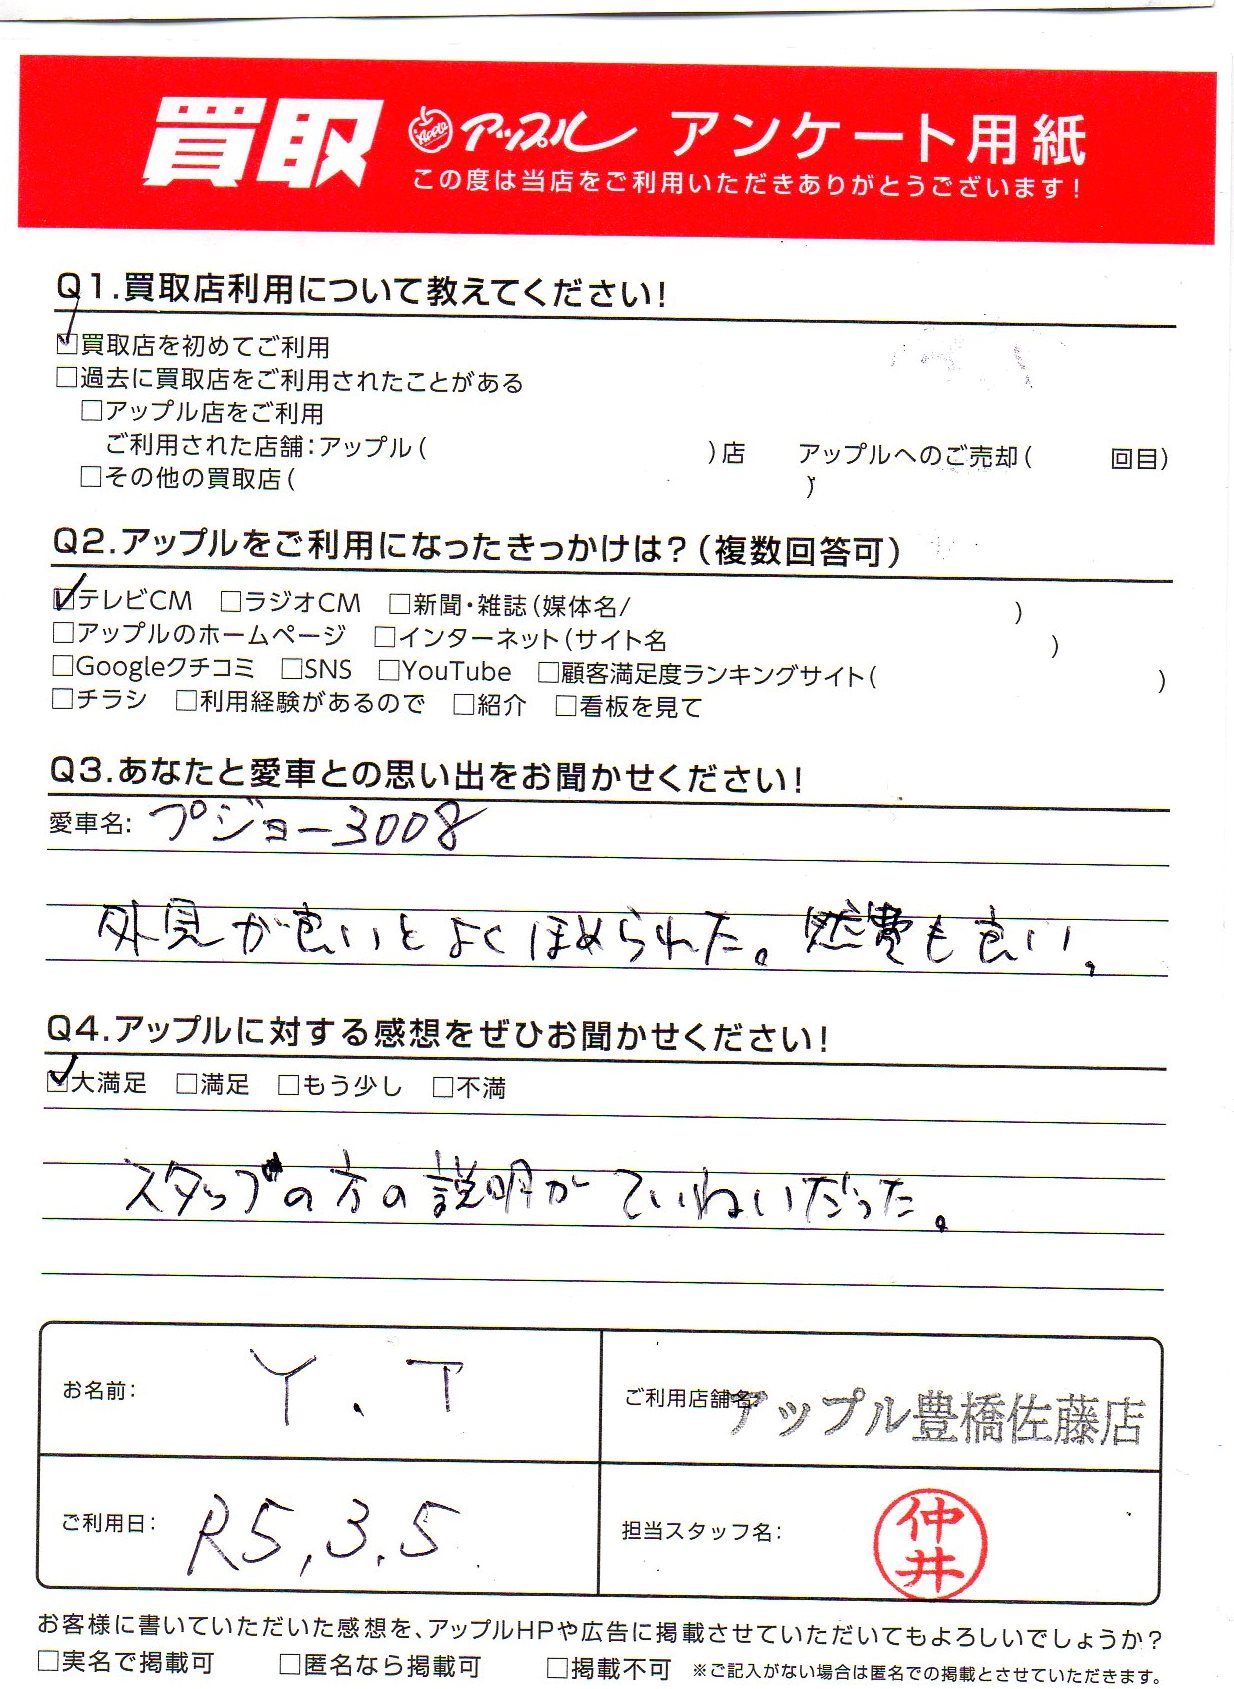 買取 Apple アップル アンケート用紙
この度は当店をご利用いただきありがとうございます!
Q1.買取店利用について教えてください!
☑買取店を初めてご利用
□過去に買取店をご利用されたことがある
□アップル店をご利用
ご利用された店舗:アップル( )店 アップルへのご売却( 回目)
□その他の買取店( )
Q2.アップルをご利用になったきっかけは?(複数回答可)
☑テレビCM □ラジオCM □新聞・雑誌(媒体名/ )
□アップルのホームページ □インターネット(サイト名 )
□Googleクチコミ □SNS □YouTube □顧客満足度ランキングサイト( )
□チラシ □利用経験があるので □紹介 □看板を見て
Q3.あなたと愛車との思い出をお聞かせください!
愛車名: プジョー3008
外見が良いとよくほめられた。燃費も良い。
Q4.アップルに対する感想をぜひお聞かせください!
☑大満足 □満足 □もう少し □不満
スタッフの方の説明がていねいだった。
お名前: Y.T
ご利用店舗名: アップル豊橋佐藤店
ご利用日: R5,3,5
担当スタッフ名: 仲井
お客様に書いていただいた感想を、アップルHPや広告に掲載させていただいてもよろしいでしょうか?
□実名で掲載可 □匿名なら掲載可 □掲載不可 ※ご記入がない場合は匿名での掲載とさせていただきます。